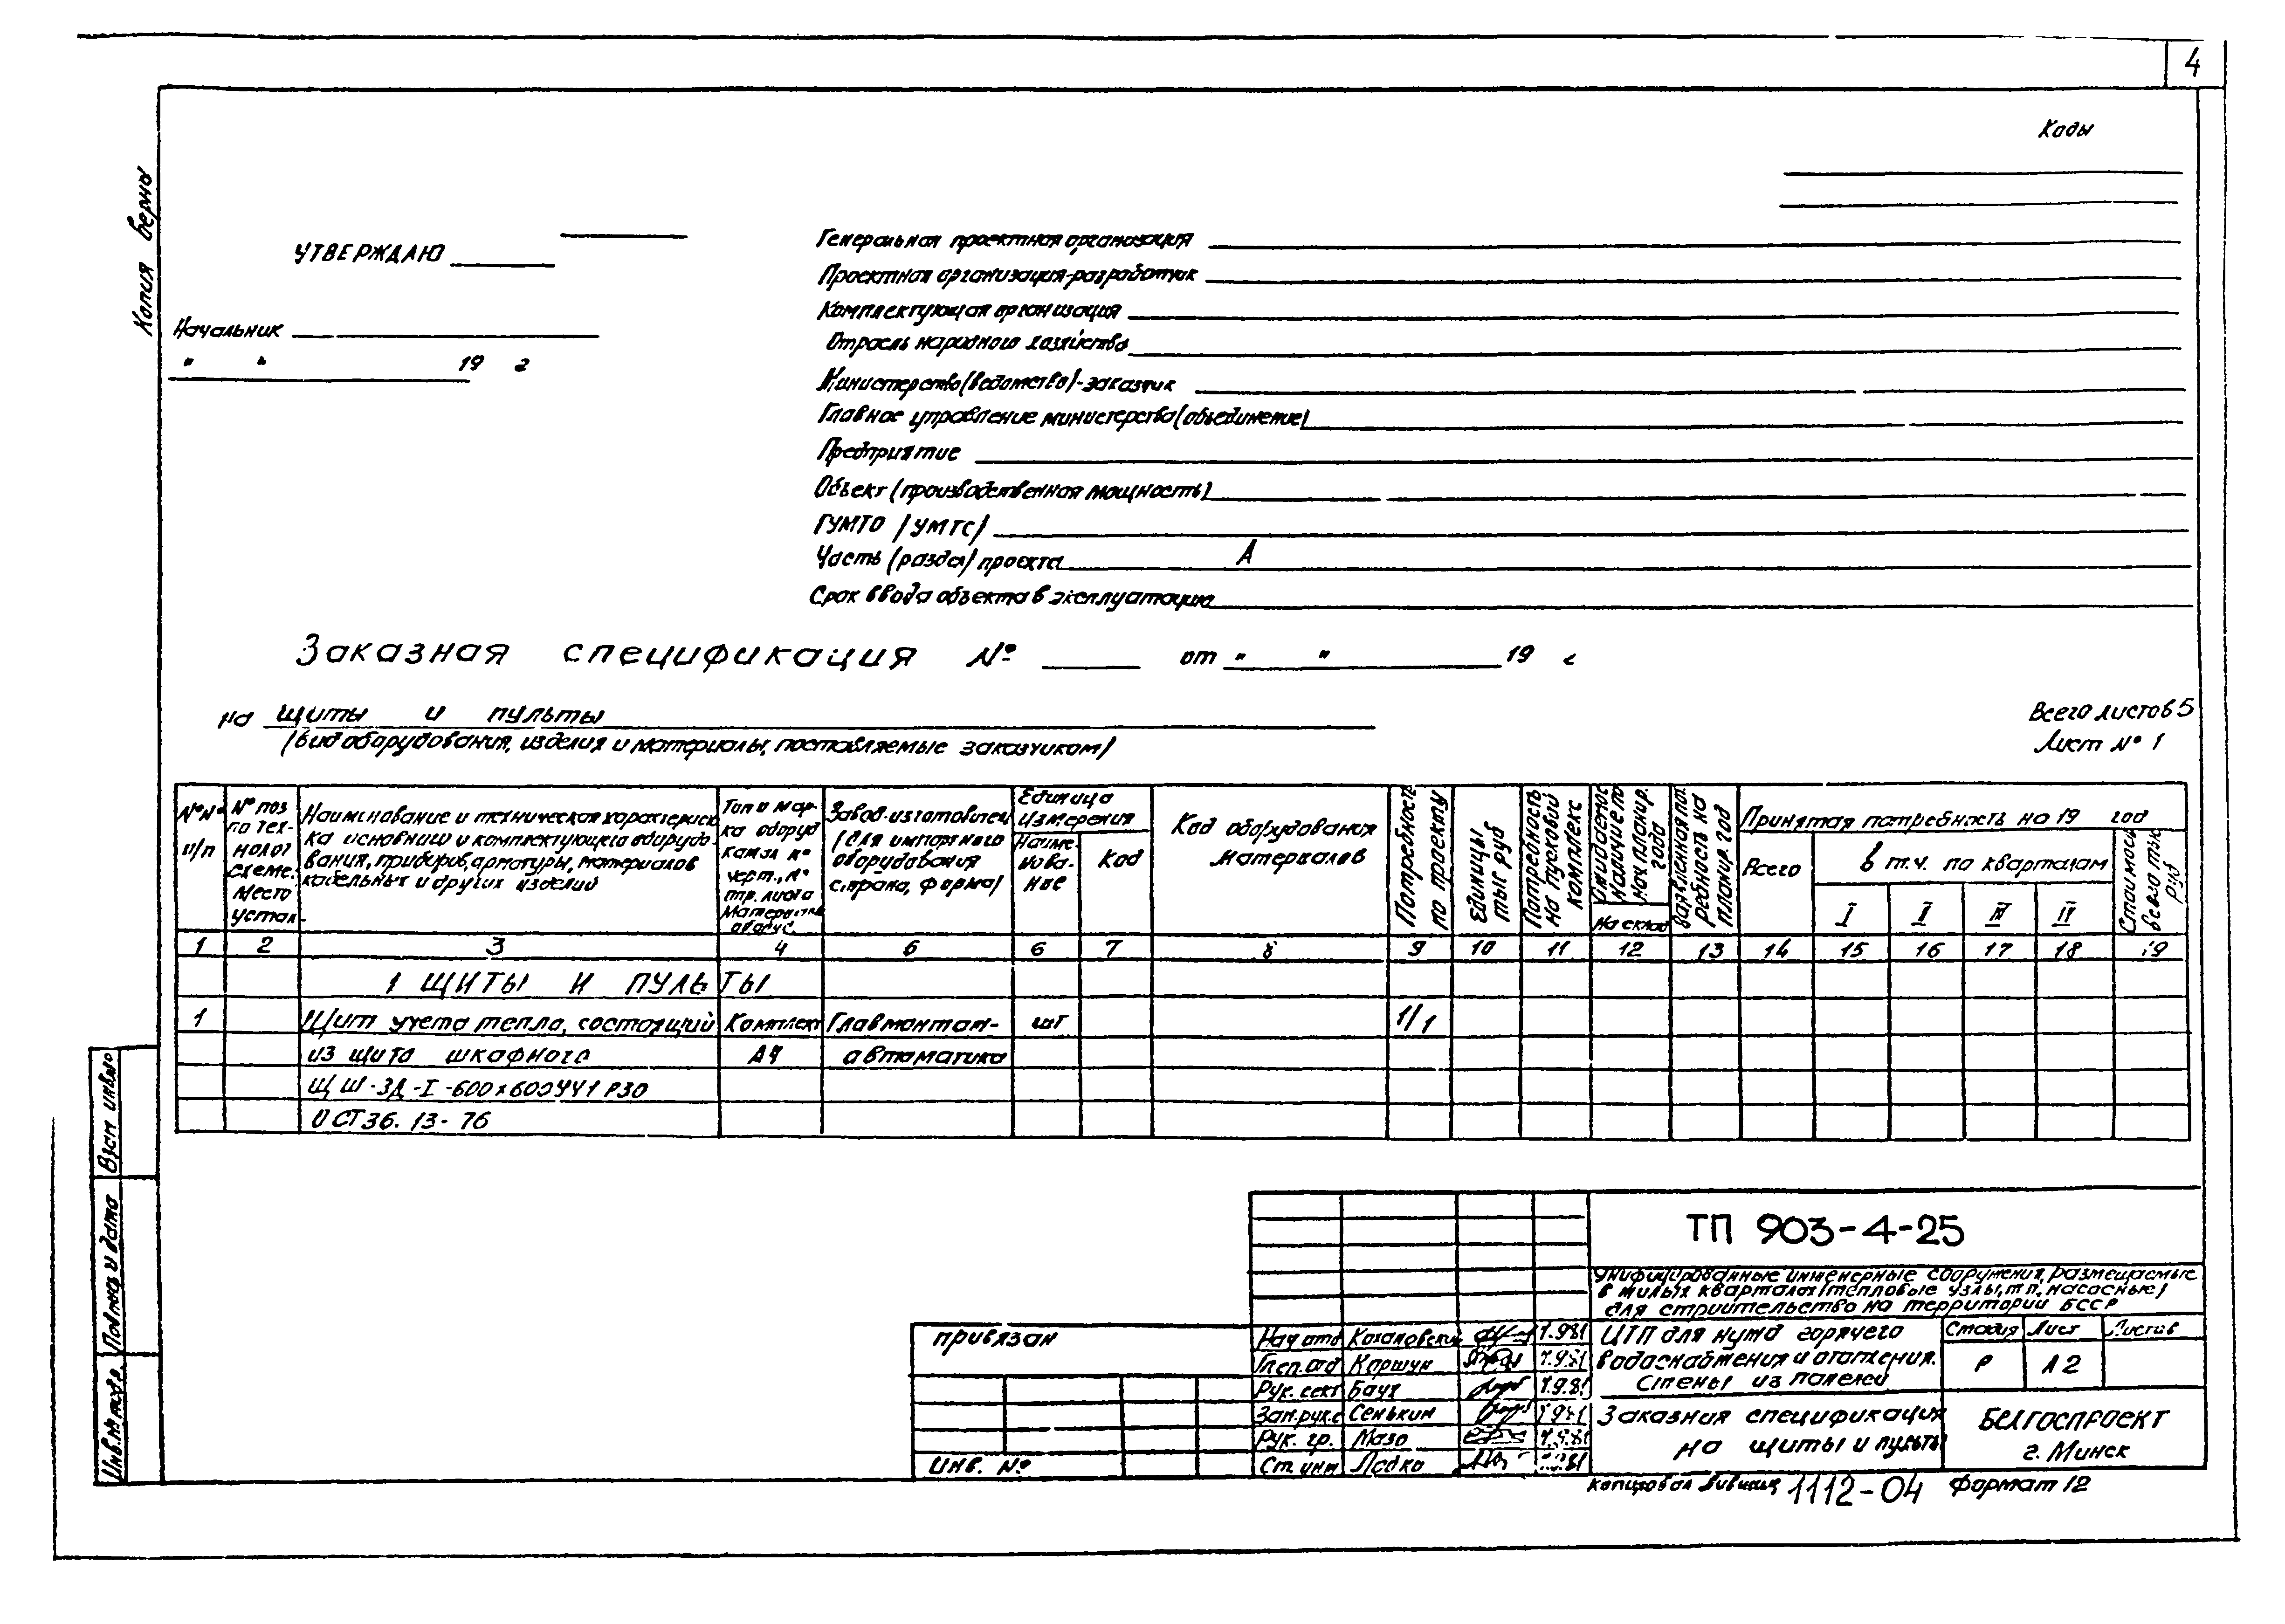 4
Коды
Копия верна
УТВЕРЖДАЮ
Начальник
" " 19 г
Генеральная проектная организация
Проектная организация-разработчик
Комплектующая организация
Отрасль народного хозяйства
Министерство(ведомство)-заказчик
Главное управление министерства(объединение)
Предприятие
Объект (производственная мощность)
ГУМТО /УМТС/
Часть (раздел) проекта А
Срок ввода объекта в эксплуатацию
Заказная спецификация № от " " 19 г
на щиты и пульты
(вид оборудования, изделия и материалы, поставляемые заказчиком)
Всего листов 5
Лист № 1
№№ п/п
№ поз по тех-нолог схеме. Место устан.
Наименование и техническая характеристи
ка основного и комплектующего оборудо-
вания, приборов, арматуры, материалов
кабельных и других изделий
Тип и мар-ка оборуд
черт., №
Завод-изготовитель
(для импортного
оборудования
страна, фирма)
Единица измерения
Наиме-нова-ние
Код
Код оборудования
материалов
Потребность по проекту
Единицы тыс руб
Потребность на пусковой комплекс
Ожидаемое наличие на нач. планир. года
На склад
Заявленная потребность на планир год
Принятая потребность на 19 год
Всего
в т.ч. по кварталам
I II III IV
Стоимость всего тыс руб
1 2 3 4 5 6 7 8 9 10 11 12 13 14 15 16 17 18 19
1 ЩИТЫ И ПУЛЬТЫ
1 Щит учета тепла, состоящий Комплект Главмонтаж- шт 1/1
из щита шкафного А4 автоматика
ЩШ-ЗД-I-600х600УЧ1 Р30
ОСТ36.13-76
Взам инв№
Подпись и дата
Инв.№ подл.
ТП 903-4-25
Унифицированные инженерные сооружения, размещаемые
в жилых кварталах(тепловые узлы, тп, насосные)
для строительства на территории БССР
привязан
Инв. №
Нач отд Кохановский 1.981
Гл.сп.отд Коршун 1.981
Рук. сект Баук 1.981
Зам.рук.с Сенькин 1.981
Рук. гр. Мазо 1.981
Ст инж Ладко 1.981
ЦТП для нужд горячего
водоснабжения и отопления.
Стены из панелей
Стадия Лист Листов
Р А2
Заказная спецификация
на щиты и пульты
БЕЛГОСПРОЕКТ
г. Минск
копировал 1112-04 Формат 12